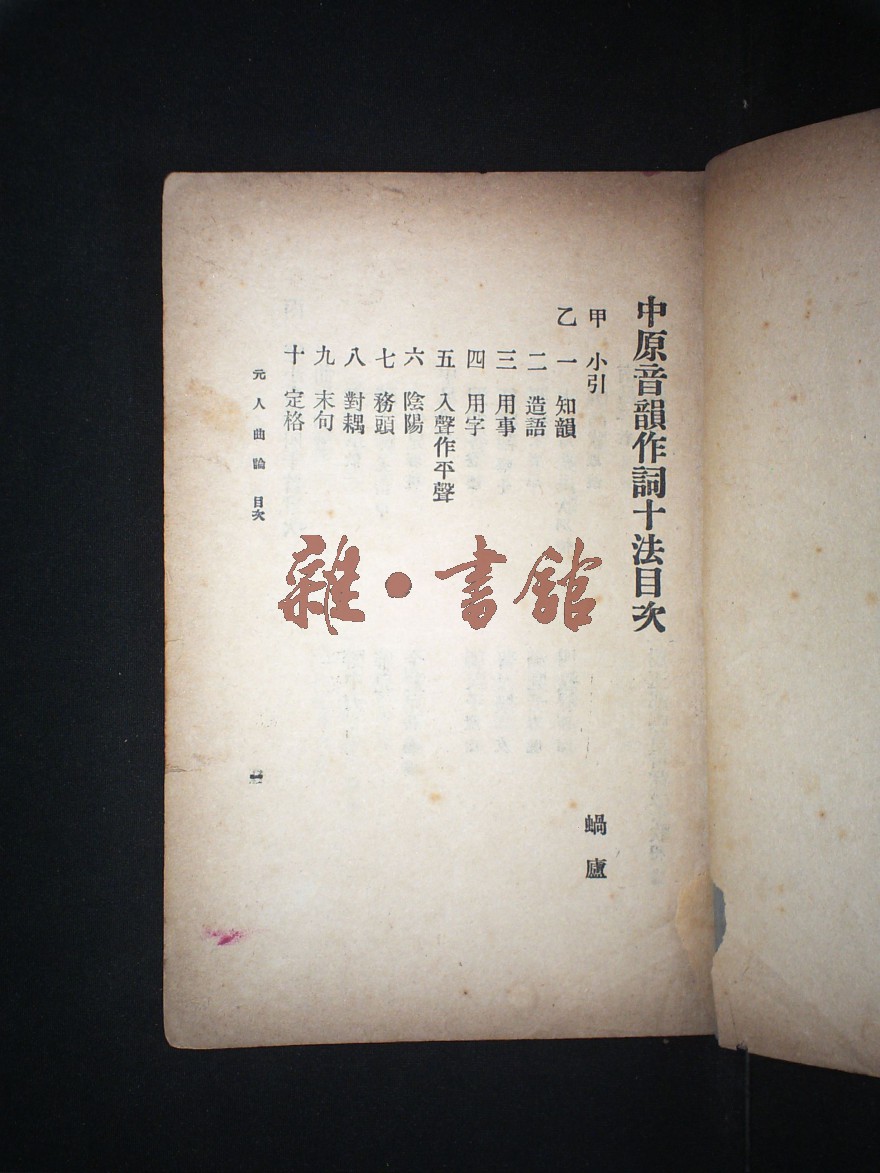 中原音韻作詞十法目次
甲 小引 蝸廬
乙 一 知韻
二 造語
三 用事
四 用字
五 入聲作平聲
六 陰陽
七 務頭
八 對耦
九 末句
十 定格
元人曲論 目次
一
雜·書館